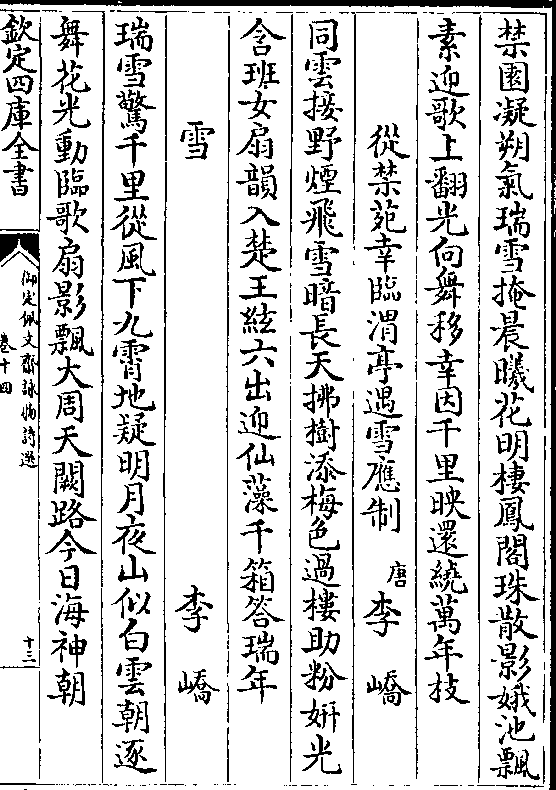 禁園凝朔氣瑞雪掩晨曦花明棲鳳閣珠散影娥池飄
素迎歌上翻光向舞移幸因千里映還繞萬年枝
從禁苑幸臨渭亭遇雪應制 唐 李嶠
同雲接野煙飛雪暗長天拂樹添梅色過樓助粉妍光
含班女扇韻入楚王絃六出迎仙藻千箱答瑞年
雪 李嶠
瑞雪驚千里從風下九霄地疑明月夜山似白雲朝逐
舞花光動臨歌扇影飄大周天闕路今日海神朝
欽定四庫全書
御定佩文齋詠物詩選
卷十四
十三